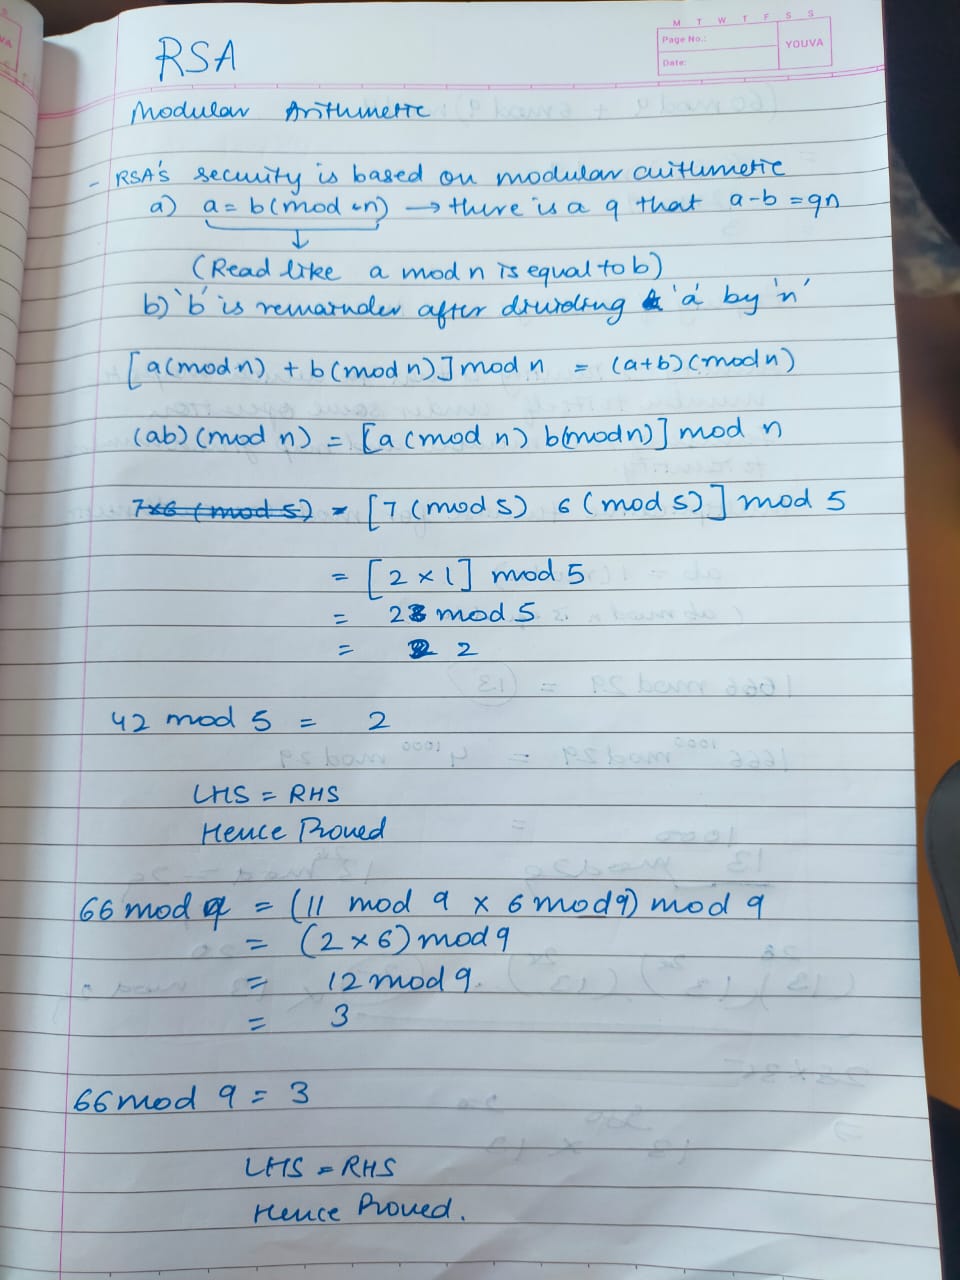 M T W T F S S
Page No.:
Date:
YOUVA
RSA
Modular Arithmetic
- RSA's security is based on modular arithmetic
a) a = b(mod n) → there is a q that a-b = qn
(Read like a mod n is equal to b)
b) 'b' is remainder after dividing 'a' by 'n'
[a(mod n) + b(mod n)] mod n = (a+b)(mod n)
(ab)(mod n) = [a (mod n) b(mod n)] mod n
7×6 (mod 5) = [7 (mod 5) 6 (mod 5)] mod 5
= [2 × 1] mod 5
= 2 mod 5
= 2
42 mod 5 = 2
LHS = RHS
Hence Proved
66 mod 9 = (11 mod 9 × 6 mod 9) mod 9
= (2 × 6) mod 9
= 12 mod 9.
= 3
66 mod 9 = 3
LHS = RHS
Hence Proved.